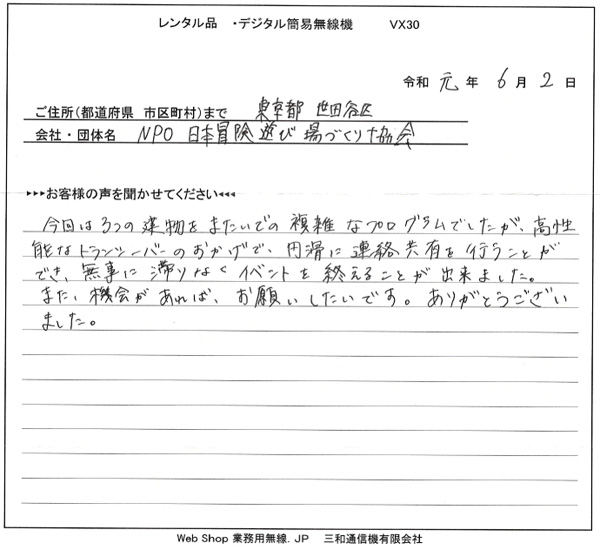 レンタル品 ・デジタル簡易無線機 VX30
令和 元 年 6 月 2 日
ご住所(都道府県 市区町村)まで 東京都 世田谷区
会社・団体名 NPO 日本冒険遊び場づくり協会
▸▸▸お客様の声を聞かせてください◂◂◂
今回は3つの建物をまたいでの複雑なプログラムでしたが、高性
能なトランシーバーのおかげで、円滑に連絡共有を行うことが
でき、無事に滞りなくイベントを終えることが出来ました。
また、機会があれば、お願いしたいです。ありがとうござい
ました。
Web Shop 業務用無線.JP 三和通信機有限会社